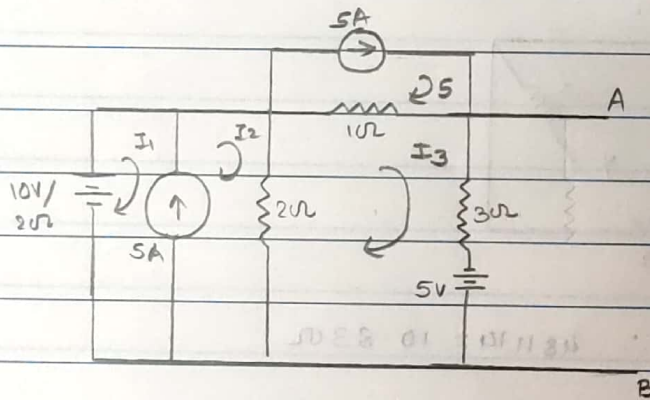 5A
5
A
1Ω
I1
I2
I3
10V/
2Ω
2Ω
3Ω
5A
5V
B